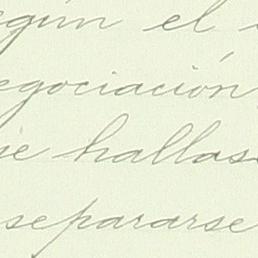 según el
negociación,
se hallas
separarse